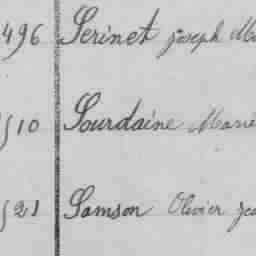 496 Serinet Joseph Ma
510 Sourdaine Marie
521 Samson Olivier Jea